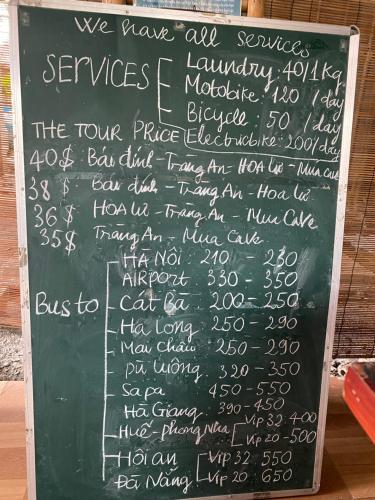 We have all services
SERVICES
Laundry: 40/1Kg
Motobike: 120 /day
Bicycle: 50 /day
Electricbike: 200/day
THE TOUR PRICE
40$ Bái đính - Tràng An - HOA Lư - Mua Cave
38 $ Bái đính - Tràng An - Hoa Lư
36 $ HOA Lư - Tràng An - Mua Cave
35$ Tràng An - Mua Cave
Bus to
HÀ NỘI: 210 - 230
AIRPORT: 330 - 350
Cát Bà: 200 - 250
Hạ Long: 250 - 290
Mai Châu: 250 - 290
Pù Luông: 320 - 350
Sapa 450 - 550
Hà Giang: 390 - 450
Huế - phong Nha
Vip 32: 400
Vip 20 - 500
Hội an
Đà Nẵng
Vip 32: 550
Vip 20: 650